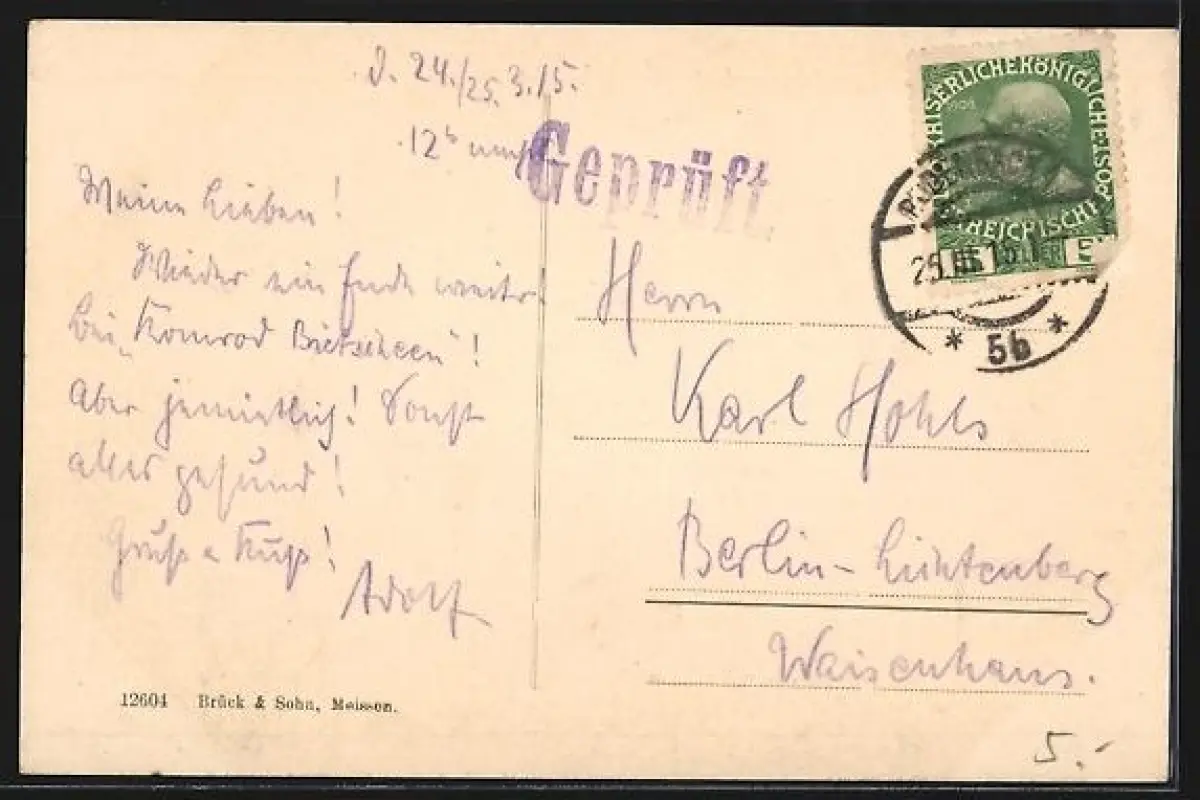 d. 24./25. 3. 15.
12ʰ
Geprüft.
Meine Lieben!
Wieder ein Ende weiter
bei „Konrad !
Aber jemietlich! Sonst
alles gesund!
Gruß u Kuß!
Adolf
KAISERLICHE KÖNIGLICHE POST
1908
25.III.15.
* 5b *
Herrn
Karl Hohls
Berlin-Lichtenberg
Waisenhaus.
12604 Brück & Sohn, Meissen.
5.-